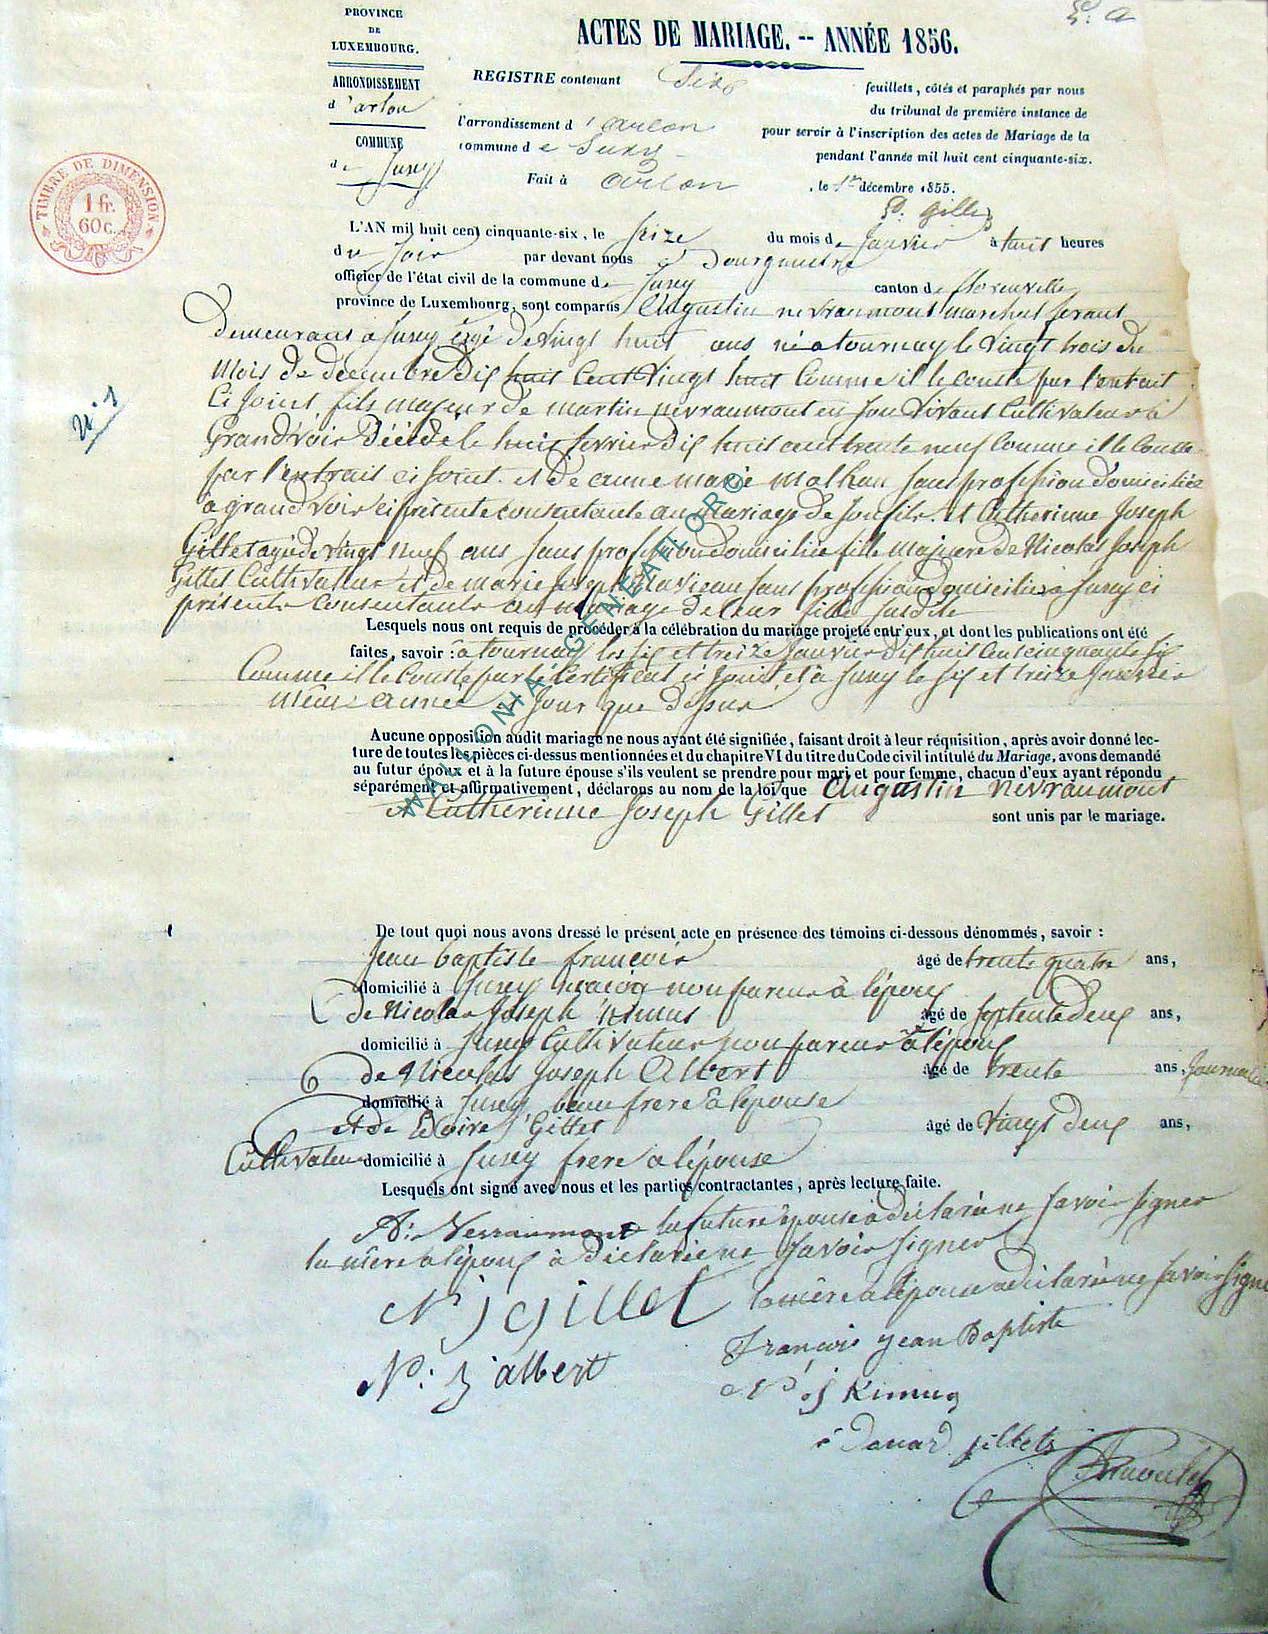 PROVINCE
DE
LUXEMBOURG.
ARRONDISSEMENT
d'arlon
COMMUNE
de Suxy
ACTES DE MARIAGE. -- ANNÉE 1856.
REGISTRE contenant feuillets, côtés et paraphés par nous
du tribunal de première instance de
l'arrondissement d'arlon pour servir à l'inscription des actes de Mariage de la
commune de Suxy pendant l'année mil huit cent cinquante-six.
Fait à arlon, le 1er décembre 1855.
TIMBRE DE DIMENSION
1 fr.
60 c.
L'AN mil huit cent cinquante-six, le seize du mois de Janvier à huit heures
du Soir par devant nous Bourgmestre
officier de l'état civil de la commune de Suxy canton de florenville
province de Luxembourg, sont comparus Augustin nevraumont marchal ferant
demeurant a Suxy agé de vingt huit ans né a tournay le vingt trois du
mois de décembre dix huit Cent vingt huit Comme il le conste par l'extrait
Ci Joint, fils majeur de martin nevraumont en son vivant Cultivateur à
Grandvoir Décédé le huit fevrier dix huit cent trente neuf Comme il le Conste
par l'extrait ci Joint. et de anne marie sans profession domiciliée
à grandvoir ci présente consentante au mariage de son fils. et Catherinne Joseph
Gillet agé de vingt neuf ans sans profession domiciliée fille majeure de Nicolas Joseph
Gillet Cultivateur et de marie Joseph sans profession domiciliés a Suxy ci
présents consentants au mariage de leur fille susdite
Lesquels nous ont requis de procéder à la célébration du mariage projeté entr'eux, et dont les publications ont été
faites, savoir : a tournay les six et treize Janvier dix huit Cent cinquante six
Comme il le Conste par le Certificat ci Joint et à Suxy le six et treize Janvier
même année Jour que dessus
Aucune opposition audit mariage ne nous ayant été signifiée, faisant droit à leur réquisition, après avoir donné lec-
ture de toutes les pièces ci-dessus mentionnées et du chapitre VI du titre du Code civil intitulé du Mariage, avons demandé
au futur époux et à la future épouse s'ils veulent se prendre pour mari et pour femme, chacun d'eux ayant répondu
séparément et affirmativement, déclarons au nom de la loi que Augustin Nevraumont
et Catherinne Joseph Gillet sont unis par le mariage.
De tout quoi nous avons dressé le présent acte en présence des témoins ci-dessous dénommés, savoir :
Jean baptiste francois âgé de trente quatre ans,
domicilié à Suxy maçon non parent à l'époux
de Nicolas Joseph âgé de ans,
domicilié à Suxy Cultivateur non parent à l'époux
de Nicolas Joseph Albert âgé de trente ans, Journalier
domicilié à Suxy beau frere à l'épouse
et de Gillet âgé de vingt deux ans,
Cultivateur domicilié à Suxy frere a l'épouse
Lesquels ont signé avec nous et les parties contractantes, après lecture faite.
A: Nevraumont la future épouse a déclaré ne savoir signer
la mère a l'époux à déclaré ne savoir signer
N J Gillet la mère a l'épouse a déclaré ne savoir signer
François Jean Baptiste
N: J albert
N J
édouard gillets
WALLONIA GENEAFI.ORG